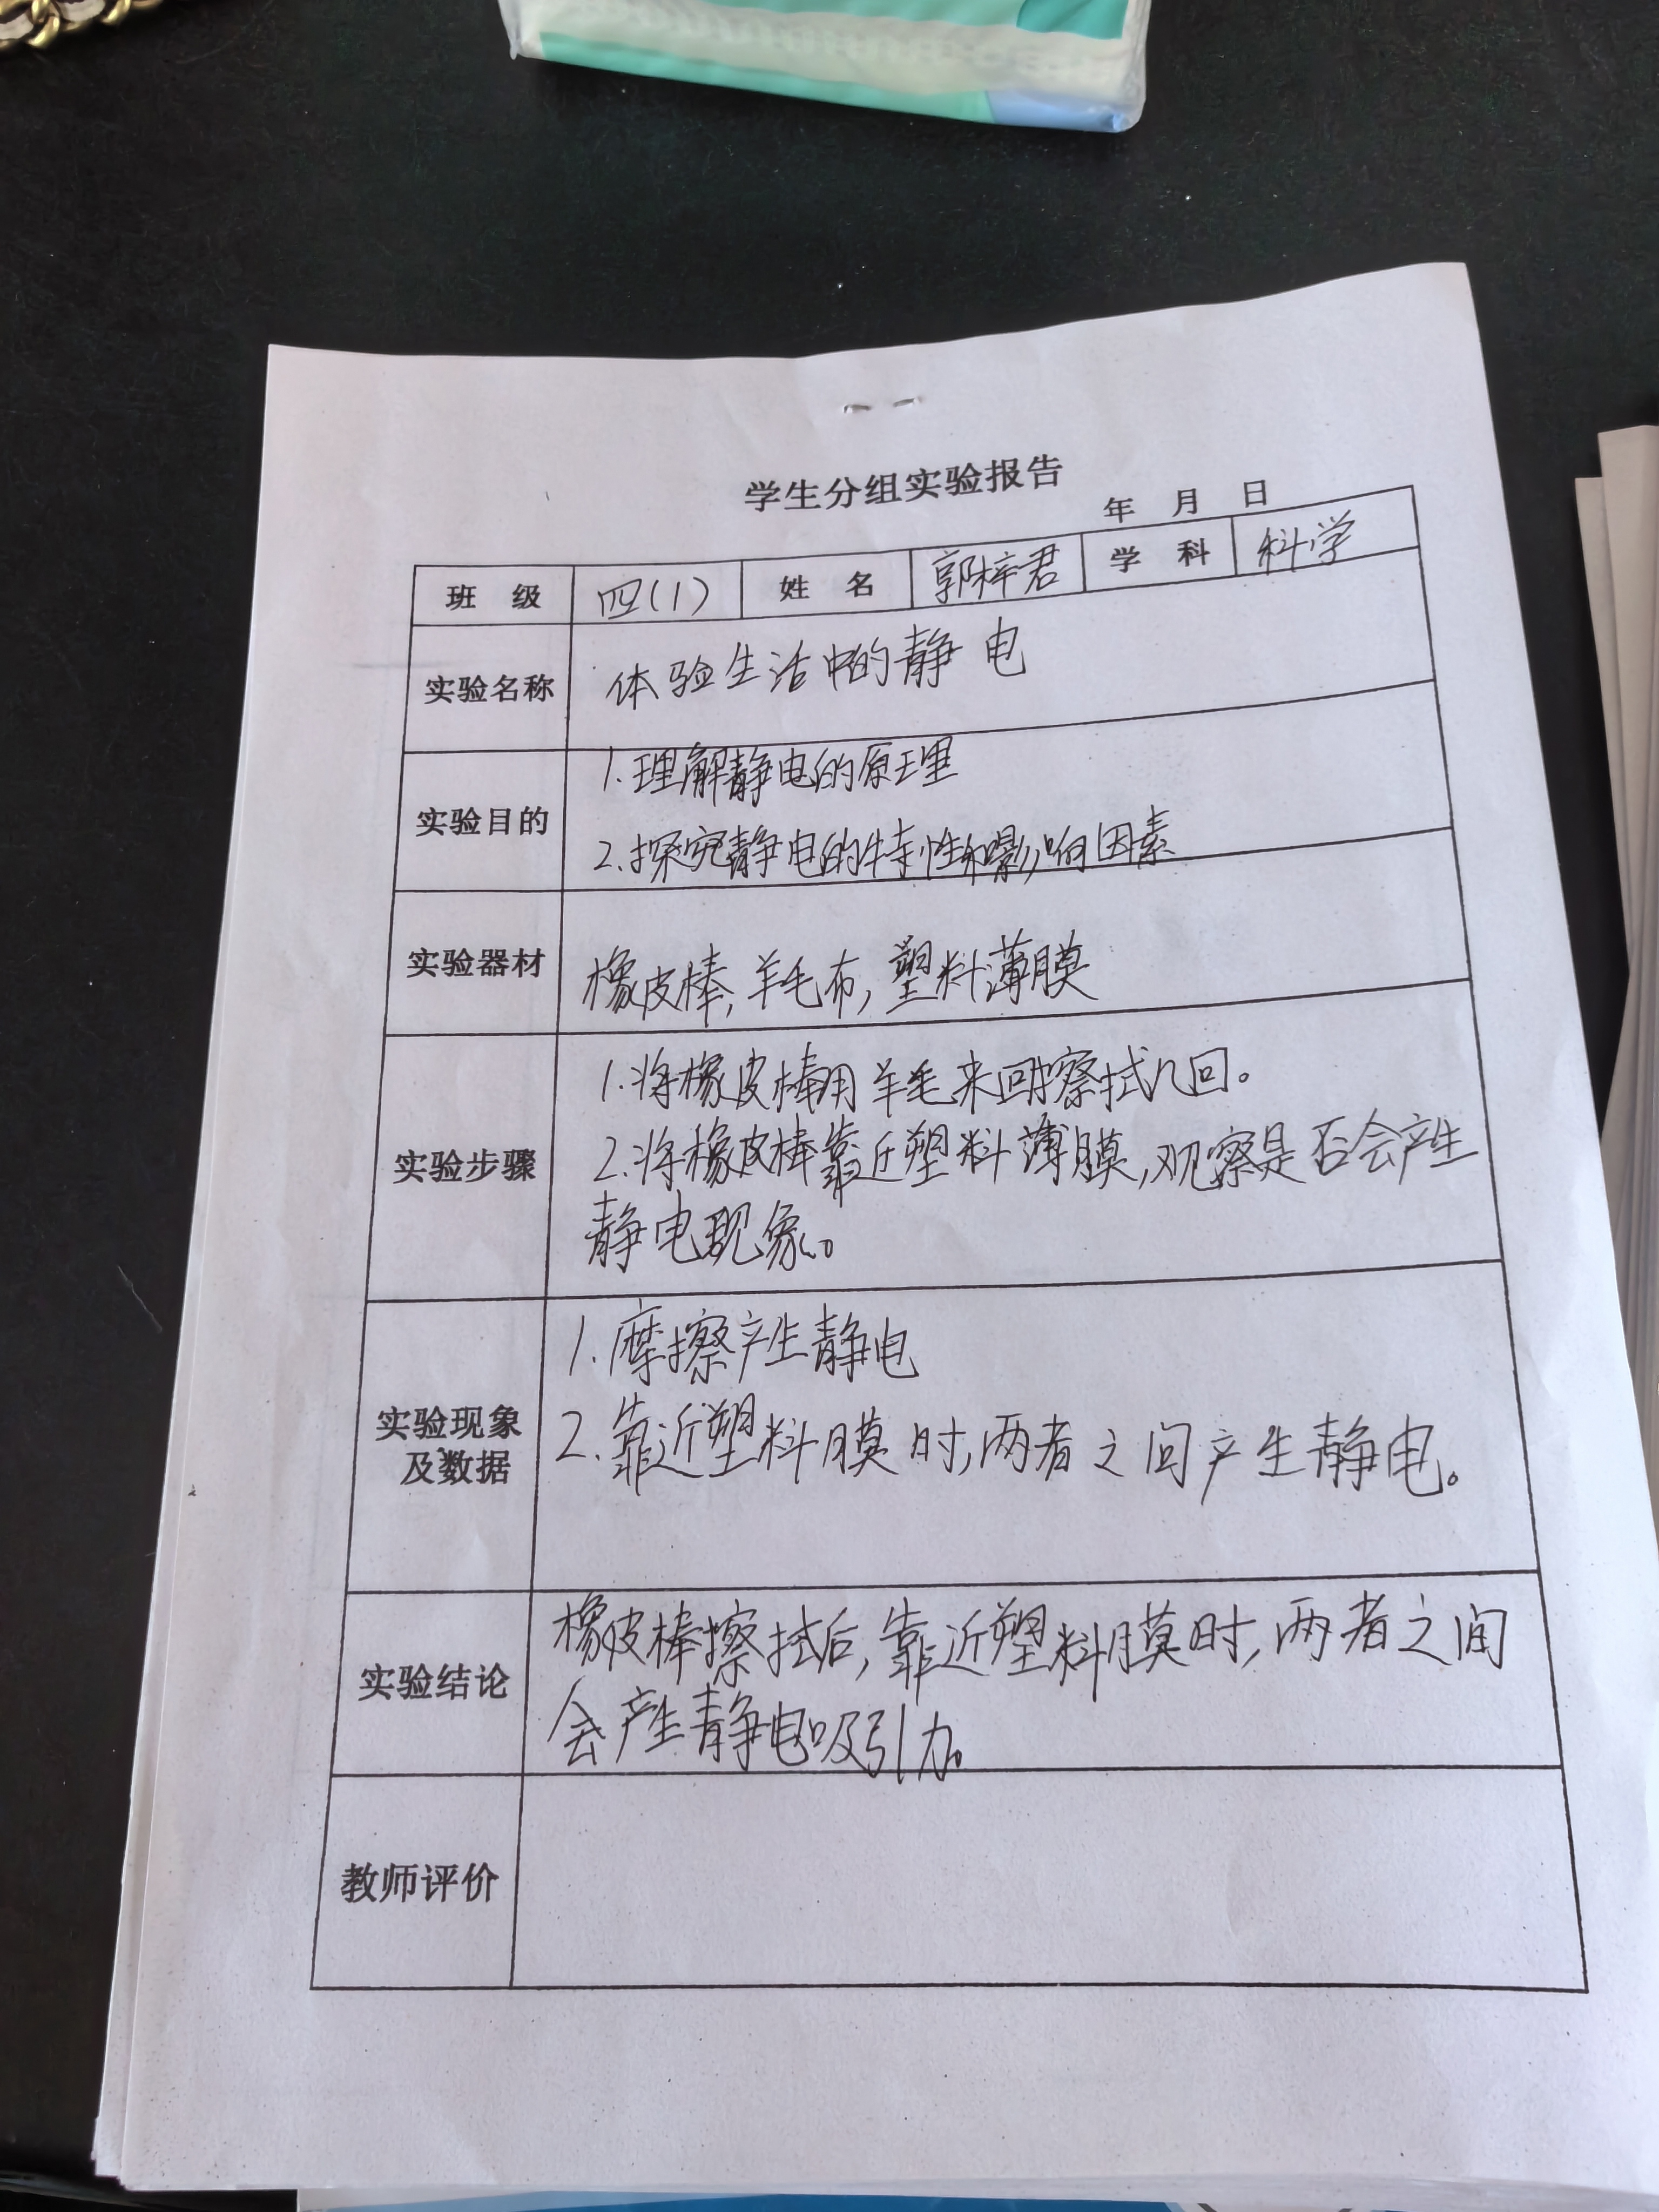 学生分组实验报告
年 月 日
班 级 四(1) 姓 名 郭梓君 学 科 科学
实验名称 体验生活中的静电
实验目的 1.理解静电的原理
2.探究静电的特性和影响因素
实验器材 橡皮棒,羊毛布,塑料薄膜
实验步骤 1.将橡皮棒用羊毛来回擦拭几回。
2.将橡皮棒靠近塑料薄膜,观察是否会产生
静电现象。
实验现象
及数据
1.摩擦产生静电
2.靠近塑料膜时,两者之间产生静电。
实验结论 橡皮棒擦拭后,靠近塑料膜时,两者之间
会产生静电吸引力。
教师评价